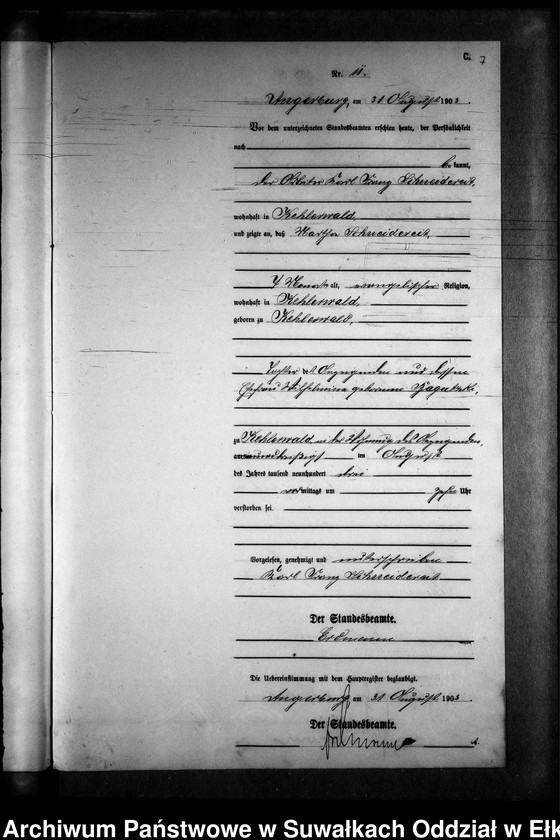 C. 7
Nr. 11.
Angerburg, am 31 August 1903.
Vor dem unterzeichneten Standesbeamten erschien heute, der Persönlichkeit
nach
bekannt,
der Karl Franz Schneidereit,
wohnhaft in Kehlerwald,
und zeigte an, daß Martha Schneidereit,
Monat alt, evangelischer Religion,
wohnhaft in Kehlerwald,
geboren zu Kehlerwald,
Tochter des Anzeigenden und dessen
Ehefrau Wilhelmine geborenen
zu Kehlerwald, in der Wohnung des Anzeigenden,
am ten August
des Jahres tausend neunhundert drei
vormittags um zehn Uhr
verstorben sei.
Vorgelesen, genehmigt und unterschrieben
Karl Franz Schneidereit
Der Standesbeamte.
Erdmann
Die Uebereinstimmung mit dem Hauptregister beglaubigt.
Angerburg am 31 August 1903.
Der Standesbeamte.
Erdmann
Archiwum Państwowe w Suwałkach Oddział w Ełk